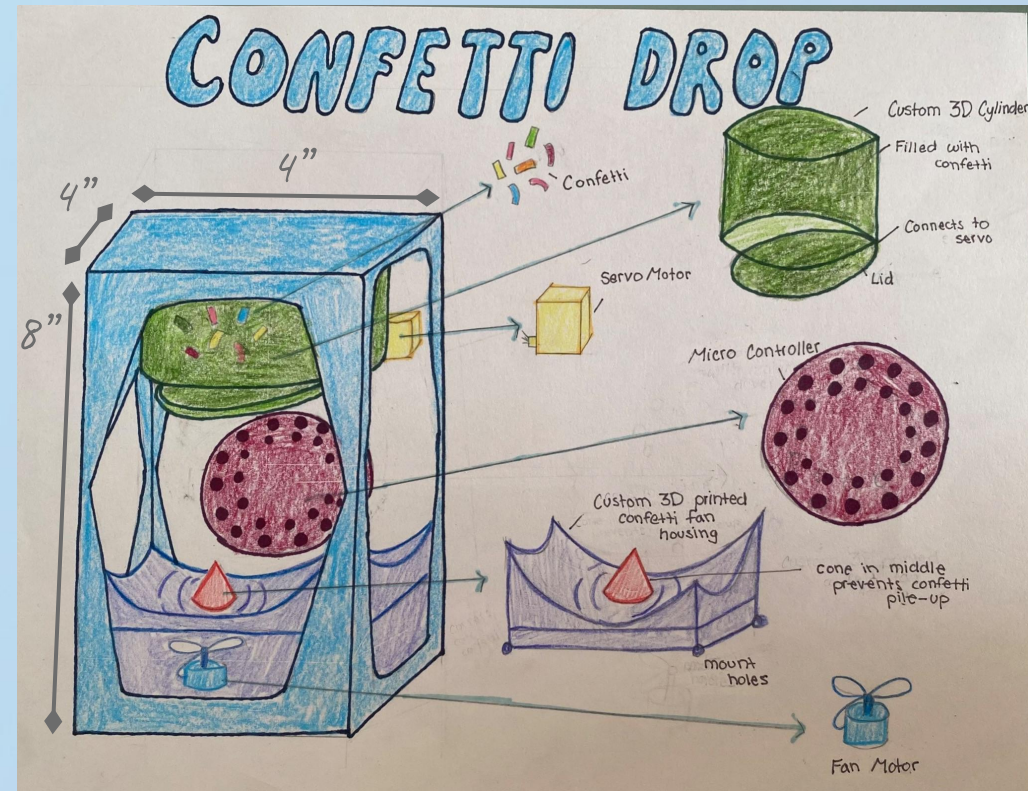 CONFETTI DROP
4"
4"
8"
Confetti
Custom 3D Cylinder
Filled with
confetti
Connects to
servo
Lid
Servo Motor
Micro Controller
Custom 3D printed
confetti fan
housing
cone in middle
prevents confetti
pile-up
mount
holes
Fan Motor